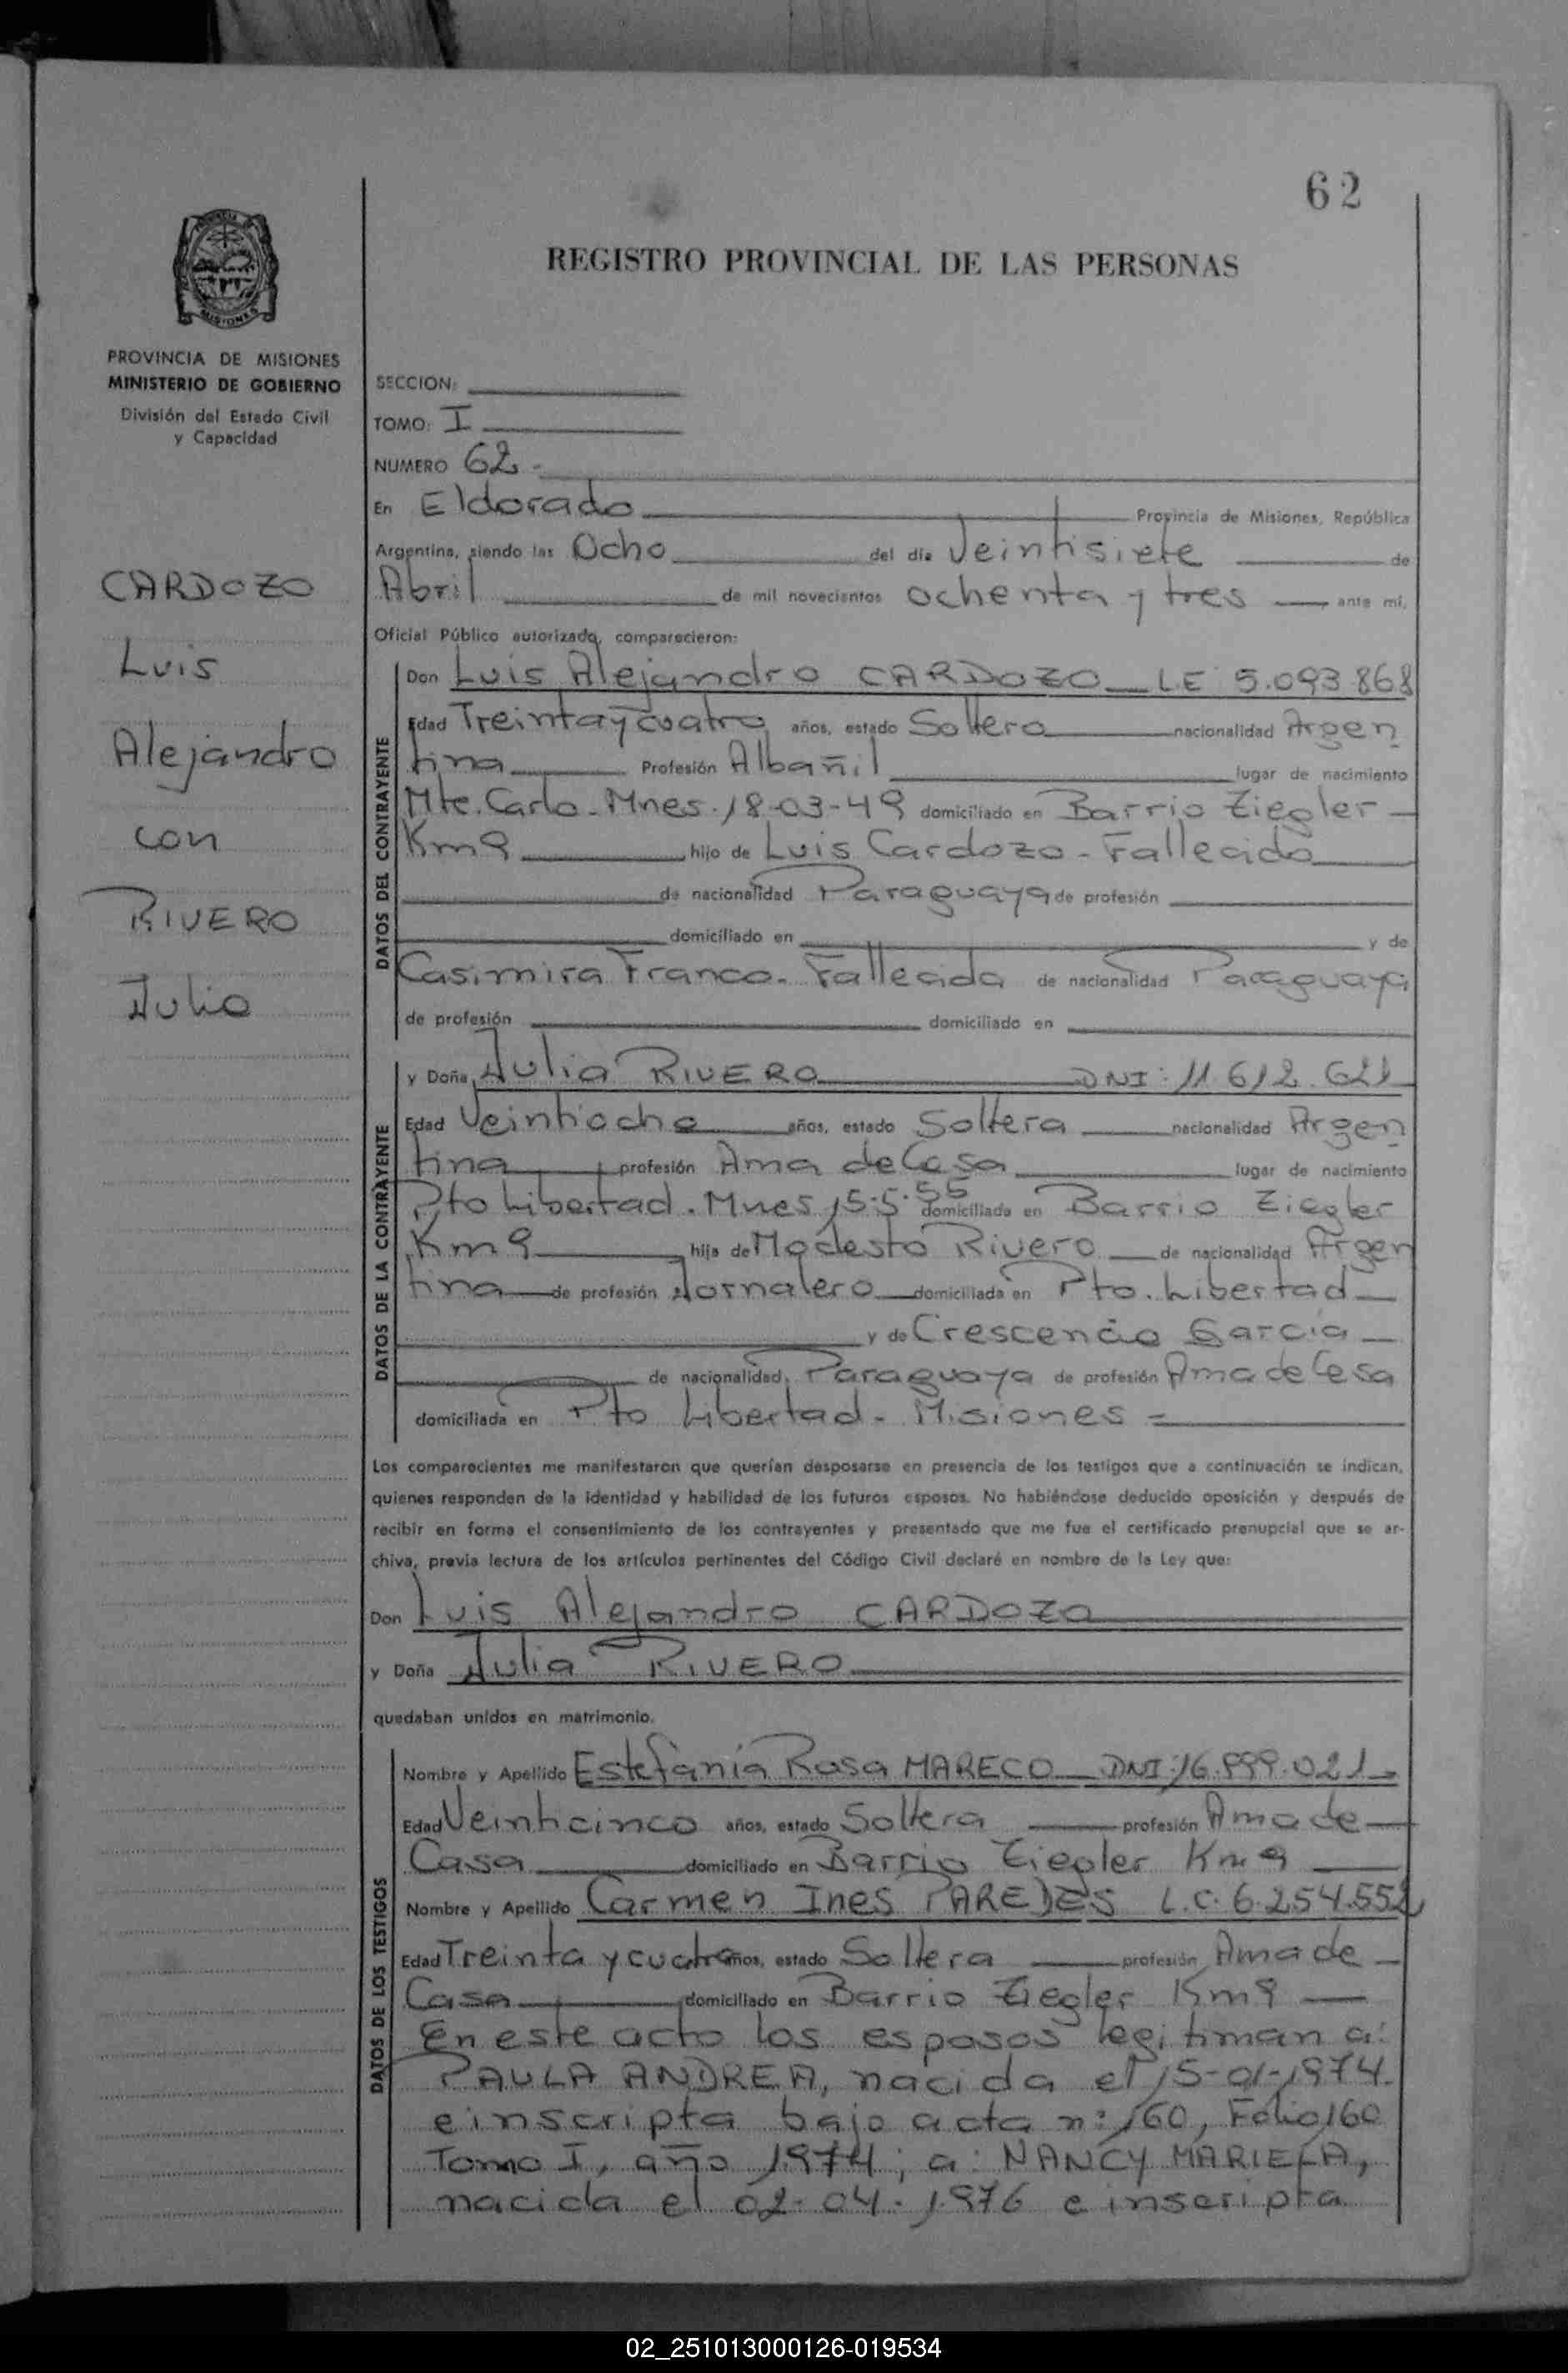 62
REGISTRO PROVINCIAL DE LAS PERSONAS
PROVINCIA DE MISIONES
MINISTERIO DE GOBIERNO
División del Estado Civil
y Capacidad
CARDOZO
Luis
Alejandro
con
RIVERO
Julia
SECCION:
TOMO: I
NUMERO 62 -
En Eldorado Provincia de Misiones, República
Argentina, siendo las Ocho del día Veintisiete de
Abril de mil novecientos ochenta y tres ante mí,
Oficial Público autorizado, comparecieron:
DATOS DEL CONTRAYENTE
Don Luis Alejandro CARDOZO L.E 5.093.868
Edad Treinta y cuatro años, estado Soltero nacionalidad Argen
tina Profesión Albañil lugar de nacimiento
Mte. Carlo - Mnes. 18-03-49 domiciliado en Barrio Ziegler -
Km 9 hijo de Luis Cardozo - Fallecido
de nacionalidad Paraguaya de profesión
domiciliado en y de
Casimira Franco - Fallecida de nacionalidad Paraguaya
de profesión domiciliado en
DATOS DE LA CONTRAYENTE
y Doña Julia RIVERO DNI: 11.612.621
Edad Veintiocho años, estado Soltera nacionalidad Argen
tina profesión Ama de Casa lugar de nacimiento
Pto Libertad. Mnes 15-5-55 domiciliada en Barrio Ziegler
Km 9 hija de Modesto Rivero de nacionalidad Argen
tina de profesión Jornalero domiciliada en Pto. Libertad
y de Crescencia Garcia
de nacionalidad Paraguaya de profesión Ama de Casa
domiciliada en Pto Libertad - Misiones =
Los comparecientes me manifestaron que querían desposarse en presencia de los testigos que a continuación se indican,
quienes responden de la identidad y habilidad de los futuros esposos. No habiéndose deducido oposición y después de
recibir en forma el consentimiento de los contrayentes y presentado que me fue el certificado prenupcial que se ar-
chiva, previa lectura de los artículos pertinentes del Código Civil declaré en nombre de la Ley que:
Don Luis Alejandro CARDOZO
y Doña Julia RIVERO
quedaban unidos en matrimonio.
DATOS DE LOS TESTIGOS
Nombre y Apellido Estefania Rosa MARECO DNI: 16.999.021
Edad Veinticinco años, estado Soltera profesión Ama de
Casa domiciliado en Barrio Ziegler Km 9
Nombre y Apellido Carmen Ines PAREDES L.C. 6.254.552
Edad Treinta y cuatro años, estado Soltera profesión Ama de
Casa domiciliado en Barrio Ziegler Km 9
En este acto los esposos legitiman a:
PAULA ANDREA, nacida el 15-01-1974
e inscripta bajo acta n: 160, Folio 160
Tomo I, año 1974; a: NANCY MARIELA,
nacida el 02-04-1976 e inscripta
02_251013000126-019534